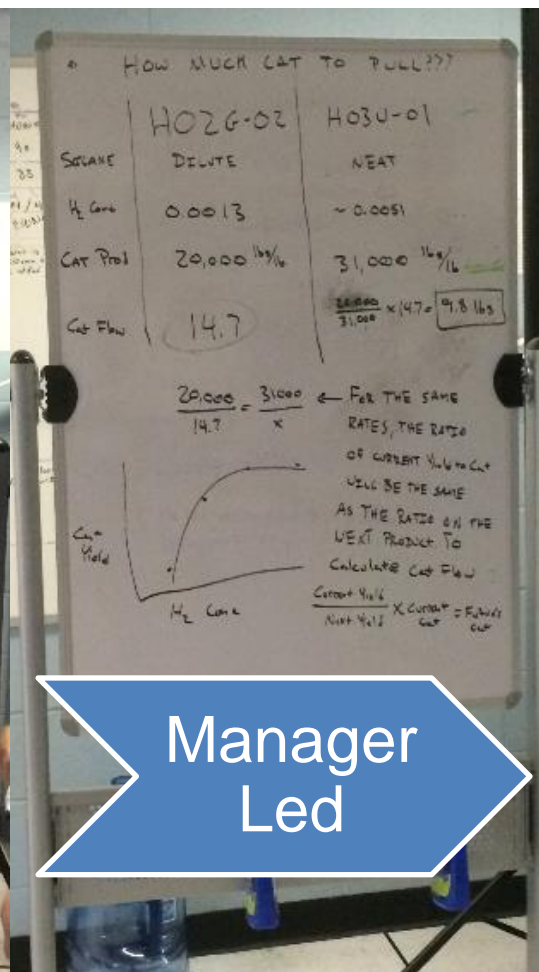 HOW MUCH CAT TO PULL???
H02G-02 H03U-01
SILANE DILUTE NEAT
H2 Conc 0.0013 ~ 0.0051
CAT Prod 20,000 lbs/lb 31,000 lbs/lb
20,000/31,000 x 14.7 = 9.8 lbs
Cat Flow 14.7
20,000/14.7 = 31000/x ← FOR THE SAME
RATES, THE RATIO
OF CURRENT Yield to Cat
WILL BE THE SAME
AS THE RATIO ON THE
NEXT PRODUCT TO
Calculate Cat Flow
Current Yield/Next Yield x Current Cat = Future Cat
Cat Yield
H2 Conc
Manager
Led